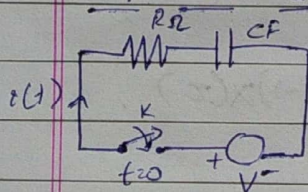 RΩ CF
i(t)
K
t=0
+ V -